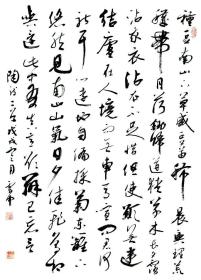 種豆南山下草盛豆苗稀晨興理荒
穢帶月荷鋤歸道狹草木長夕露
沾我衣衣沾不足惜但使願無違
結廬在人境而無車馬喧問君何
能爾心遠地自偏採菊東籬下
悠然見南山山氣日夕佳飛鳥相
與還此中有真意欲辨已忘言
陶詩二首戊戌